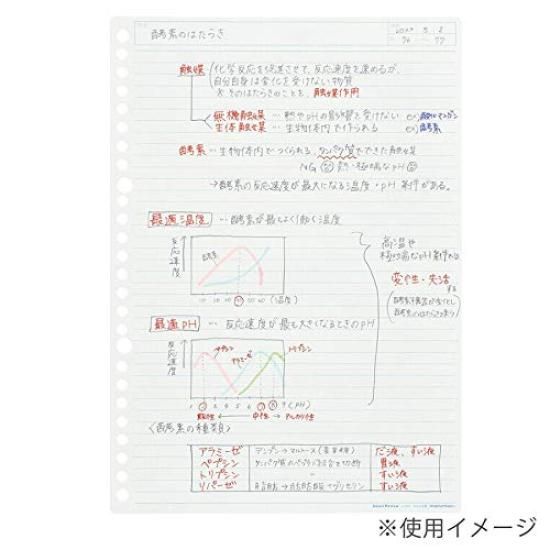 酵素のはたらき
触媒…化学反応を促進させて、反応速度を速めるが、
自分自身は変化を受けない物質
※そのはたらきのことを、触媒作用
無機触媒…熱やpHの影響を受けない ex)
生体触媒…生物体内で作られる ex)酵素
酵素…生物体内でつくられる、タンパク質でできた触媒
NG 熱・極端なpH
→酵素の反応速度が最大になる温度・pH条件がある。
最適温度…酵素が最もよく働く温度
反応速度
酵素
(温度)
高温や
極端なpH条件では
変性・失活
する
最適pH…反応速度が最も大きくなるときのpH
反応速度
ペプシン アミラーゼ トリプシン
1 2 3 4 5 6 7 8 9 (pH)
酸性 ← 中性 → アルカリ性
〈酵素の種類〉
アラミーゼ デンプン→マルトース(麦芽糖) だ液、すい液
ペプシン タンパク質のペプチド結合を切断 胃液
トリプシン 〃 すい液
リパーゼ 脂肪→脂肪酸とグリセリン すい液
※使用イメージ